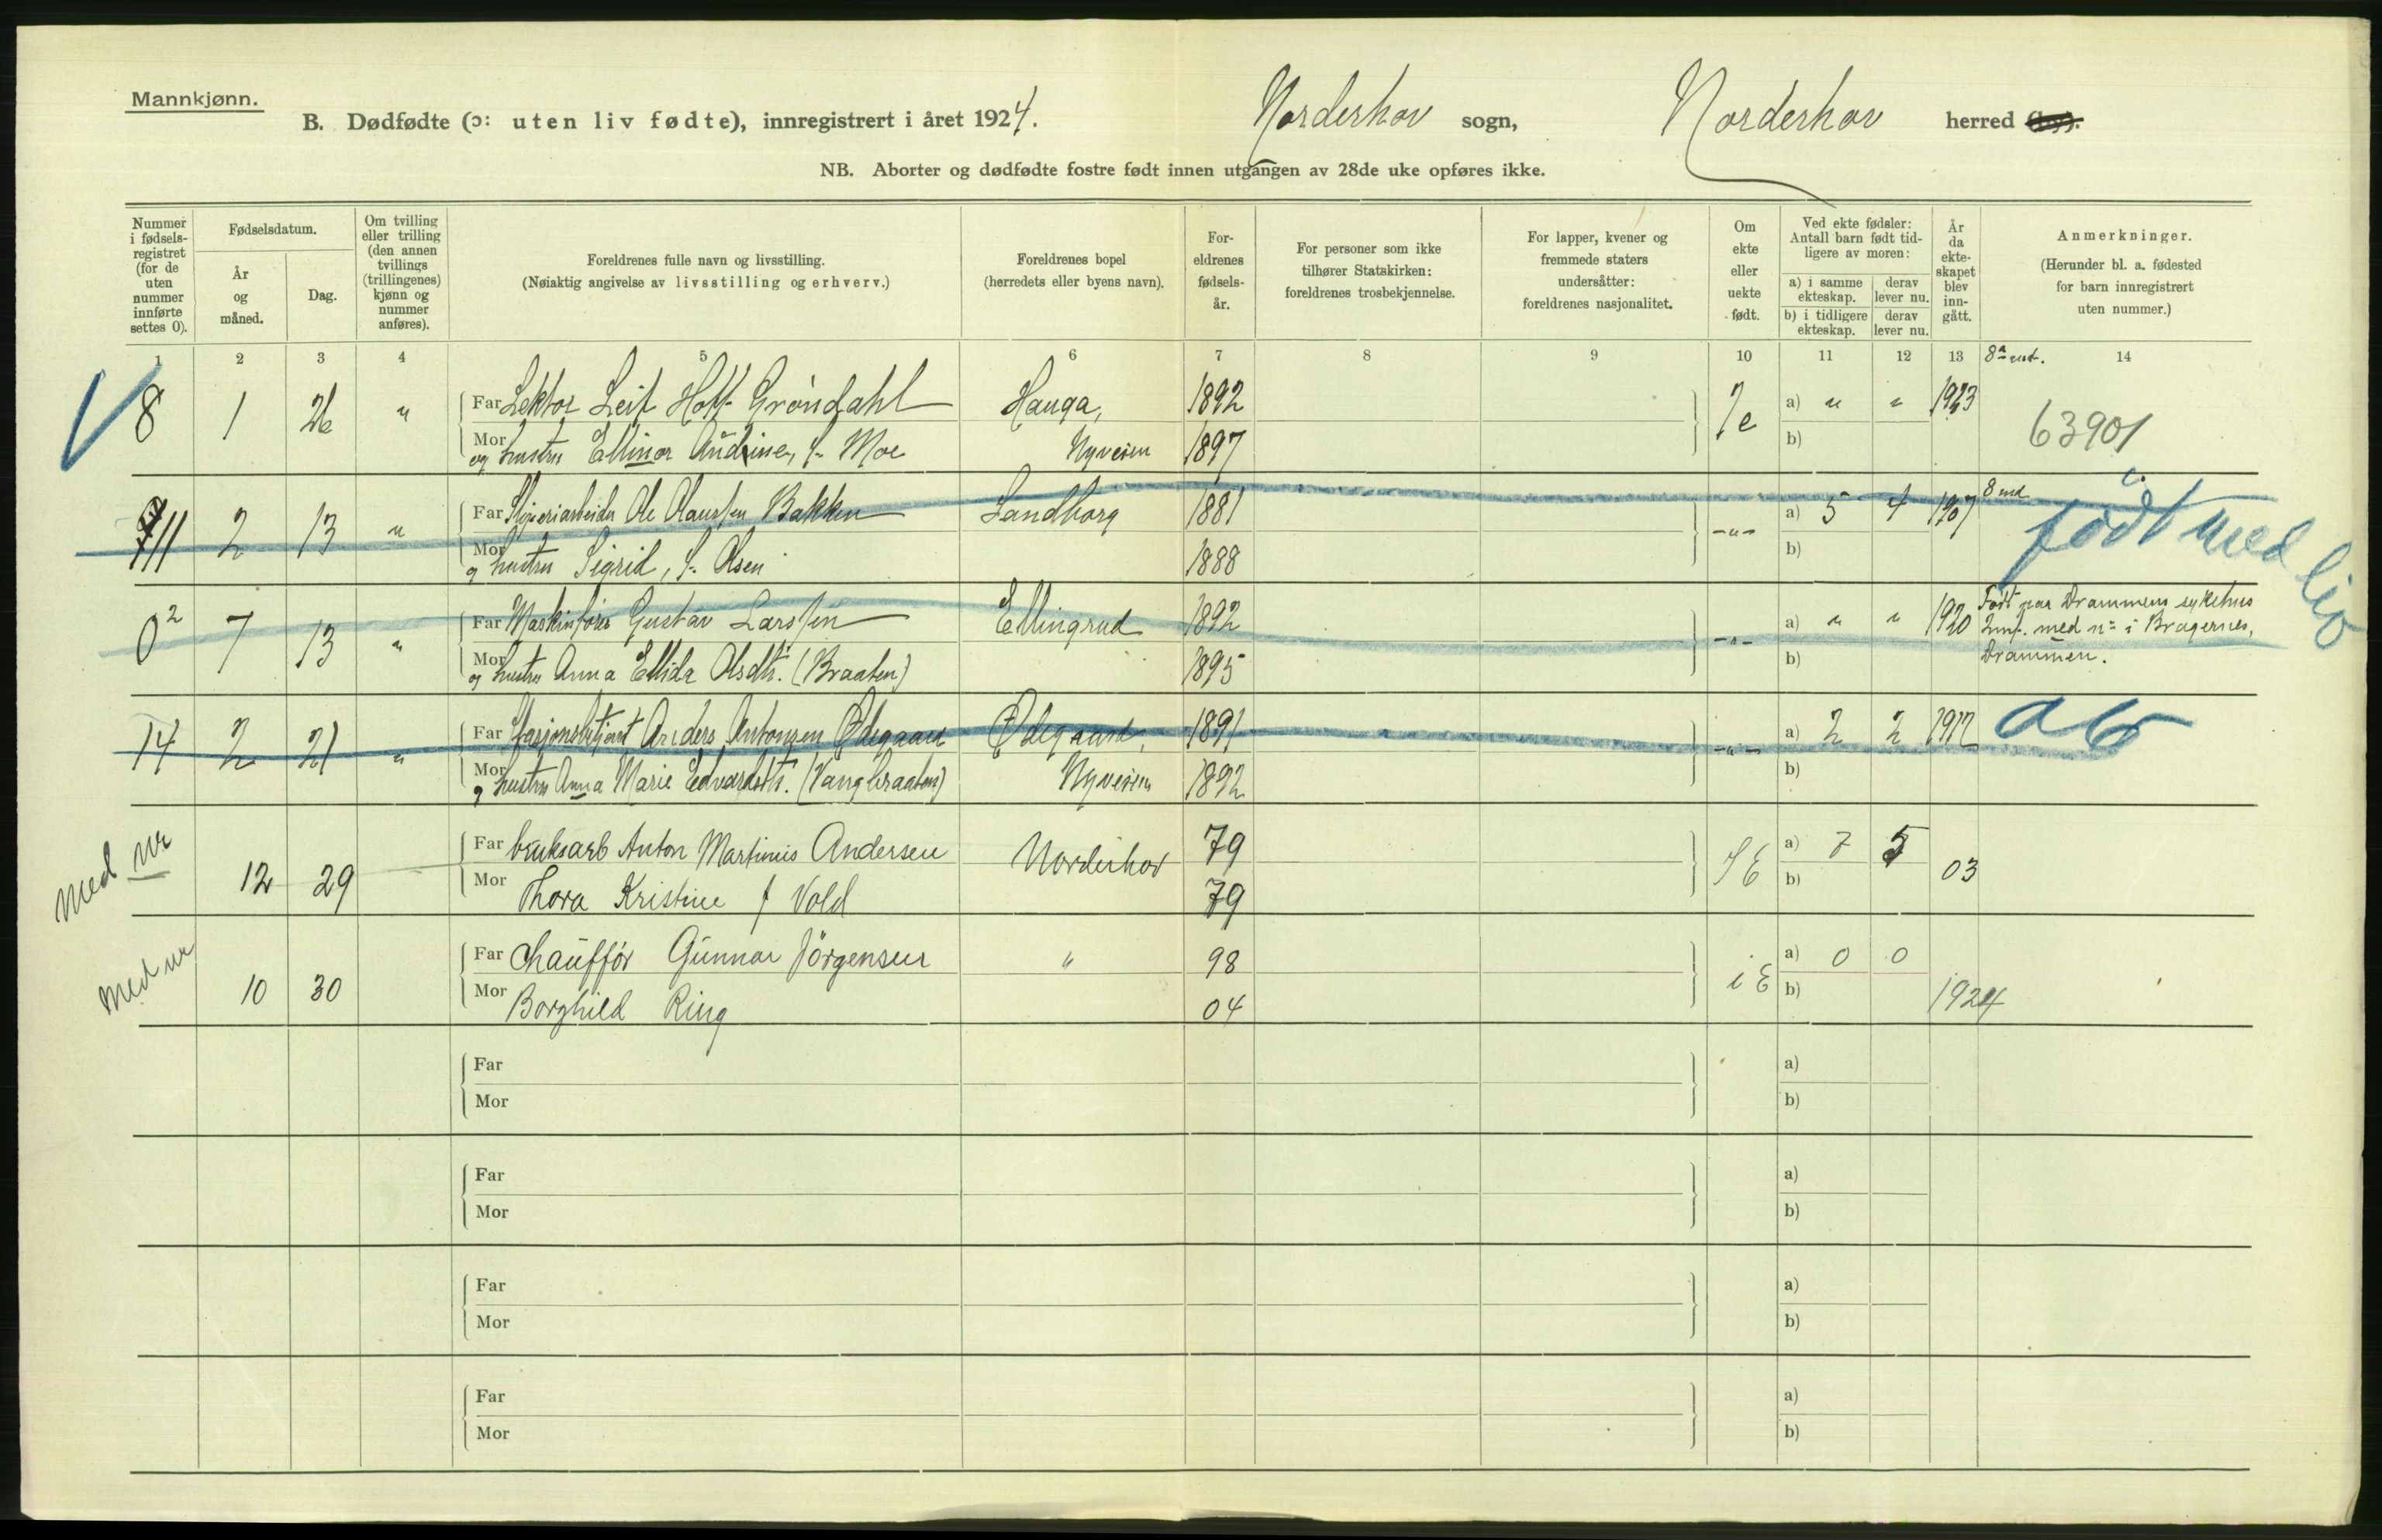 Mannkjønn.
B. Dødfødte (ɔ: uten liv fødte), innregistrert i året 1924. Norderhov sogn, Norderhov herred (by).
NB. Aborter og dødfødte fostre født innen utgangen av 28de uke opføres ikke.
Nummer i fødselsregistret (for de uten nummer innførte settes 0).
Fødselsdatum.
År og måned.
Dag.
Om tvilling eller trilling (den annen tvillings (trillingenes) kjønn og nummer anføres).
Foreldrenes fulle navn og livsstilling.
(Nøiaktig angivelse av livsstilling og erhverv.)
Foreldrenes bopel
(herredets eller byens navn).
Foreldrenes fødselsår.
For personer som ikke tilhører Statskirken: foreldrenes trosbekjennelse.
For lapper, kvener og fremmede staters undersåtter: foreldrenes nasjonalitet.
Om ekte eller uekte født.
Ved ekte fødsler: Antall barn født tidligere av moren:
a) i samme ekteskap. derav lever nu.
b) i tidligere ekteskap. derav lever nu.
År da ekteskapet blev inngått.
Anmerkninger.
(Herunder bl. a. fødested for barn innregistrert uten nummer.)
1 2 3 4 5 6 7 8 9 10 11 12 13 14
8 1 26 " Far Lektor Leif Hoff Gröndahl Hauga, 1892 a) " " 1923
Mor og hustru Ellinor Audine, f. Moe Nyveien 1897 b) 63901
11 2 13 " Far Sliperiarbeider Ole Olaussen Bakken Sandborg 1881 -"- a) 5 4 1907 8 md. født med liv
Mor og hustru Sigrid, f. Olsen 1888 b)
0² 7 13 " Far Maskinfører Gustav Larssen Ellingrud 1892 -"- a) " " 1920 Født paa Drammens sykehus
Innf. med nr i Bragernes,
Drammen.
Mor og hustru Anna Ellida Olsdtr. (Braaten) 1895 b)
14 2 21 " Far Stasjonsbetjent Anders Antonsen Ødegaard Ødegaard, 1891 -"- a) 2 2 1917 ab
Mor og hustru Anna Marie Edvardsdtr. (Vangbraaten) Nyveien 1892 b)
med nr 12 29 Far bruksarb Anton Martinius Andersen Norderhov 79 a) 7 5 03
Mor Thora Kristine f Vold 79 b)
med nr 10 30 Far Chauffør Gunnar Jörgensen " 98 i E a) 0 0 1924
Mor Borghild Ring 04 b)
Far a)
Mor b)
Far a)
Mor b)
Far a)
Mor b)
Far a)
Mor b)